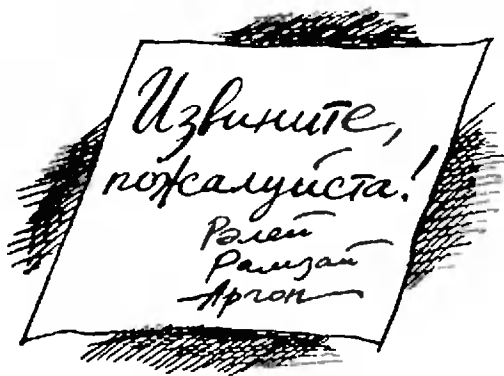 Извините,
пожалуйста!
Рэлей
Рамзай
Аргон